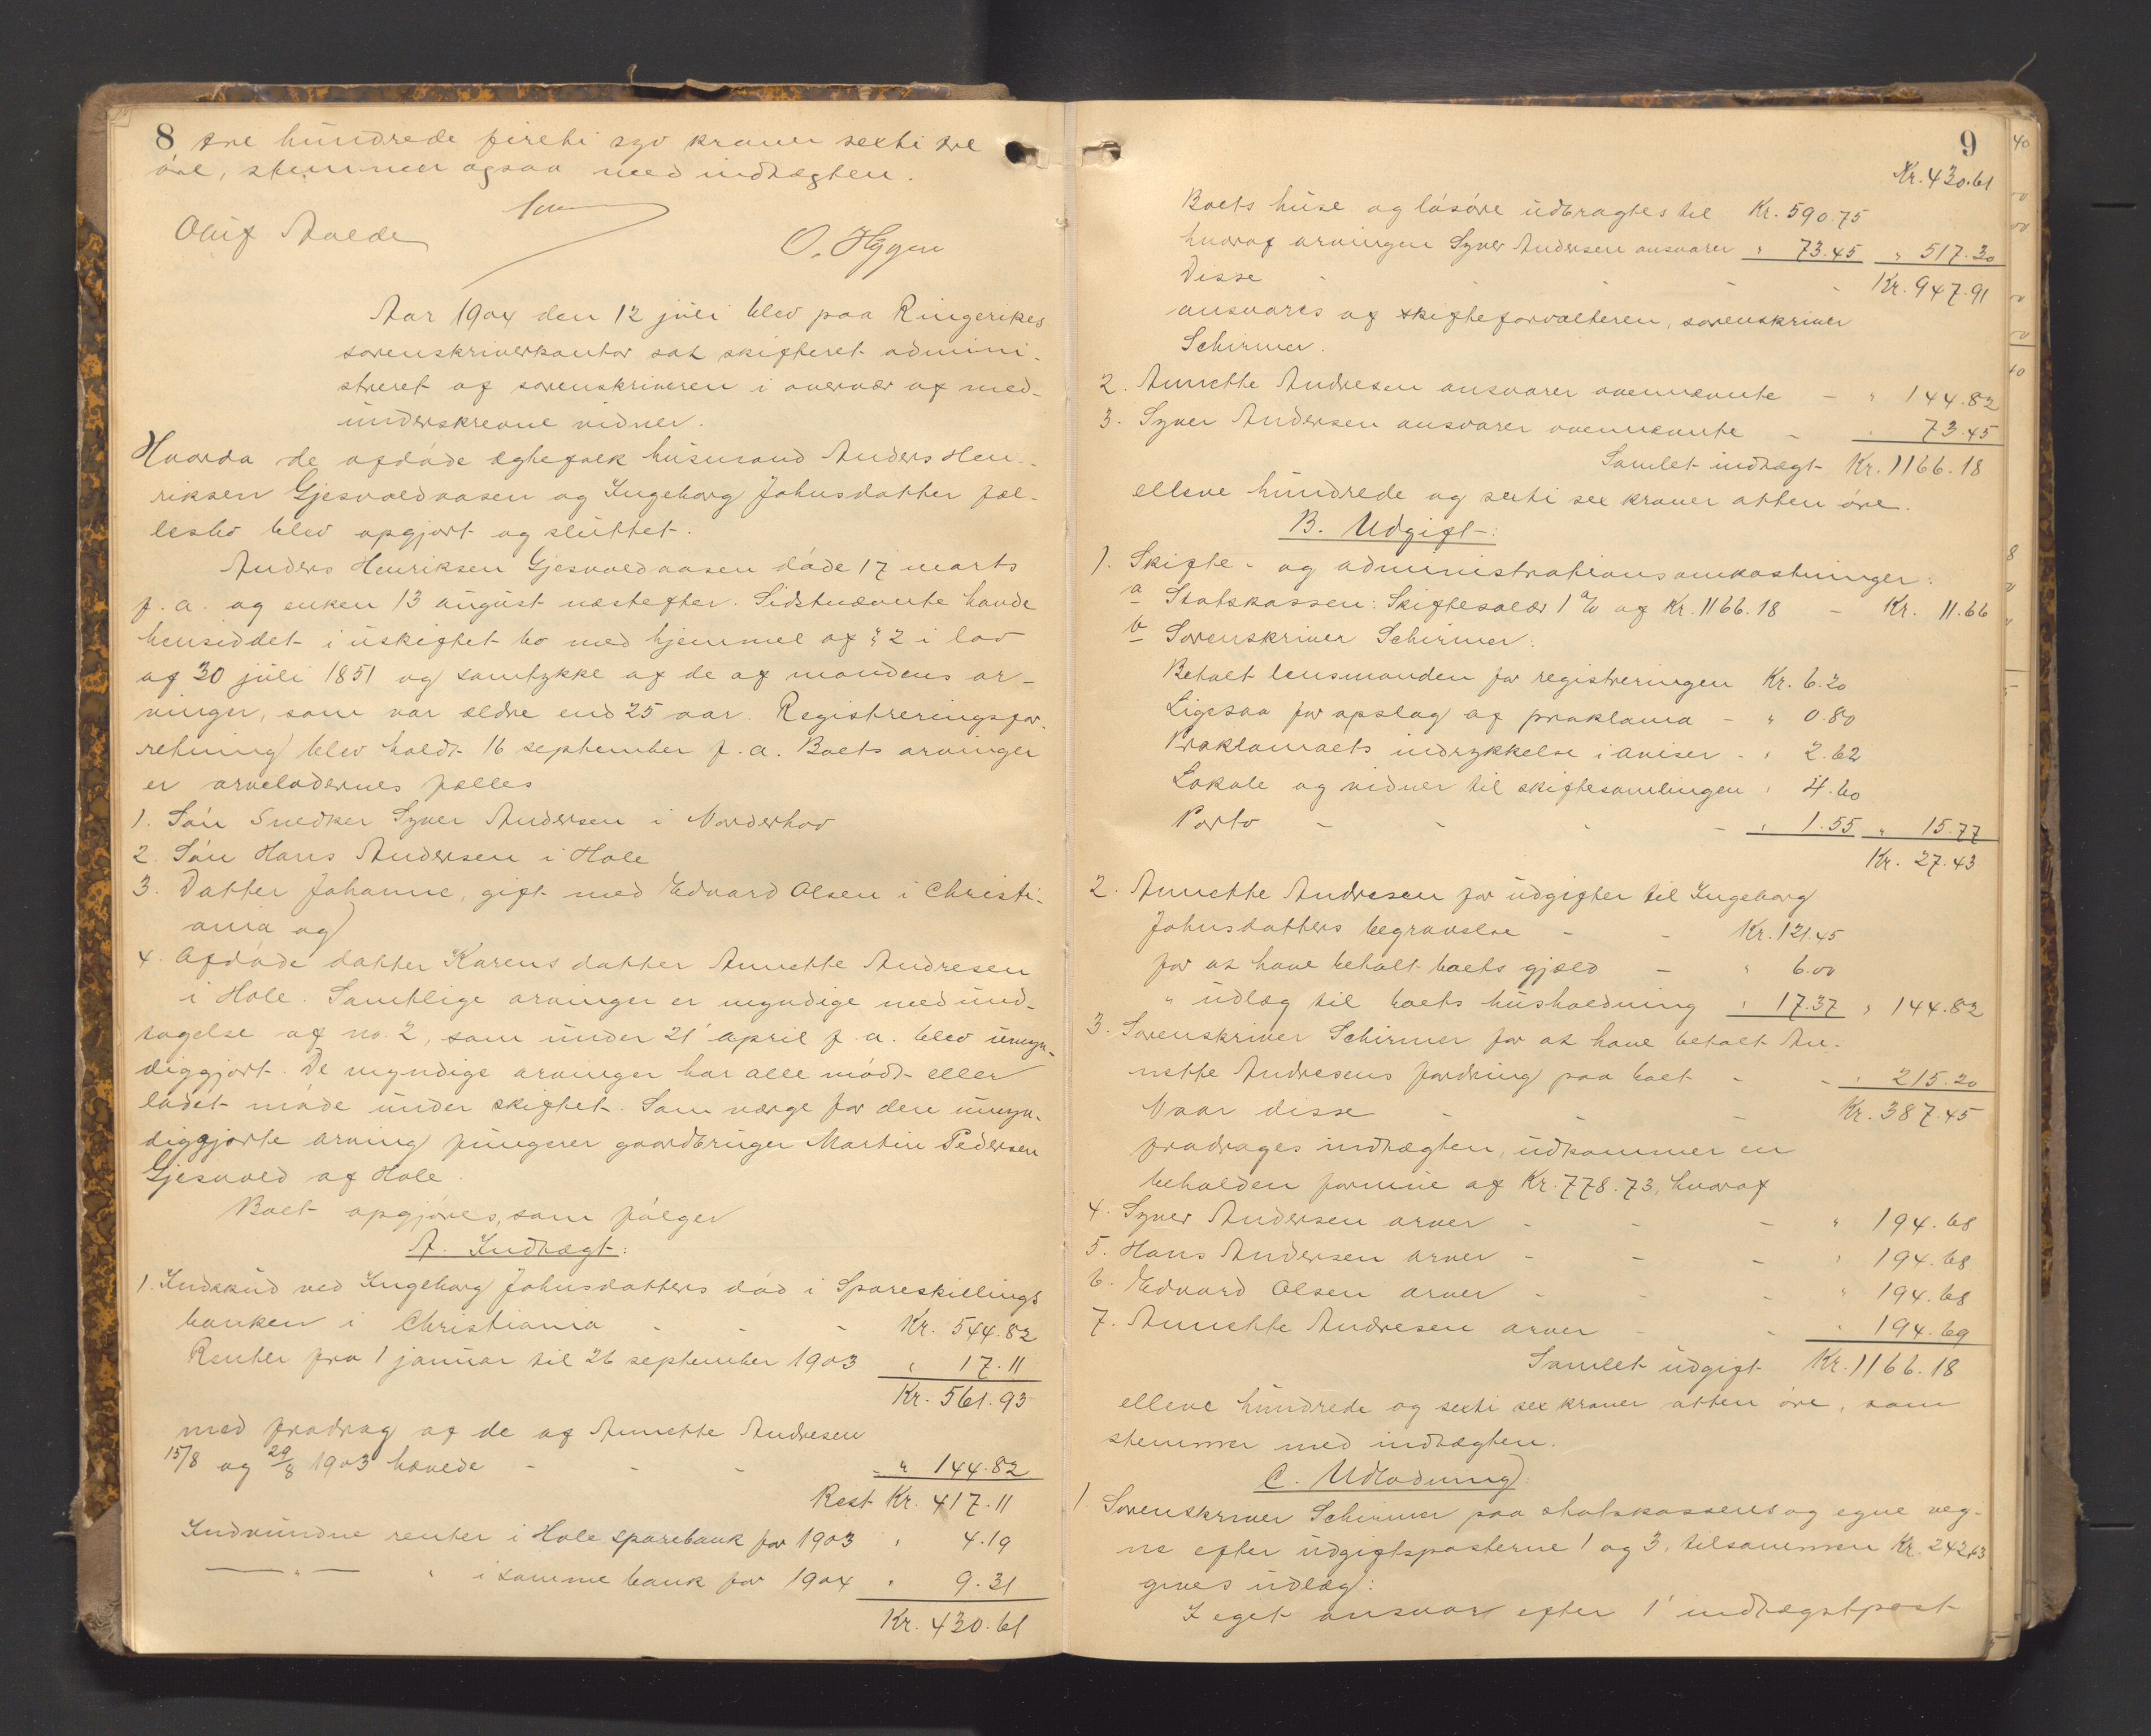 8 tre hundrede firti syv kroner sexti tre
øre, stemmer ogsaa med indtægten.
Oluf Aalde
O. Hygen
Aar 1904 den 12 juli blev paa Ringerikes
sorenskriverkontor sat skifteret admini-
streret af sorenskriveren i overvær af med-
underskrevne vidner.
Hvorda de afdøde ægtefolk husmand Anders Hen-
riksen Gjesvoldaasen og Ingeborg Johnsdatter fæl-
lesbo blev opgjort og sluttet.
Anders Henriksen Gjesvoldaasen døde 17 marts
f. a. og enken 13 august næstefter. Sidstnævnte havde
hensiddet i uskiftet bo med hjemmel af § 2 i lov
af 30 juli 1851 og samtykke af de af mandens ar-
vinger, som var ældre end 25 aar. Registreringsfor-
retning blev holdt 16 september f. a. Boets arvinger
er arveladernes fælles
1. Søn Snedker Syver Andersen i Norderhov
2. Søn Hans Andersen i Hole
3. Datter Johanne, gift med Edvard Olsen i Christi-
ania og
4. Afdøde datter Karens datter Annette Andresen
i Hole. Samtlige arvinger er myndige med und-
tagelse af no. 2, som under 21' april f. a. blev umyn-
diggjort. De myndige arvinger har alle mødt eller
ladet møde under skiftet. Som værge for den umyn-
diggjorte arving fungerer gaardbruger Martin Pedersen
Gjesvold af Hole.
Boet opgjøres, som følger
A. Indtægt:
1. Indskud ved Ingeborg Johnsdatters død i Spareskillings
banken i Christiania - - - Kr. 544.82
Renter fra 1 januar til 26 september 1903 " 17.11
Kr. 561.93
med fradrag af de af Annette Andresen
15/8 og 29/8 1903 hævede - - - " 144.82
Rest Kr. 417.11
Indvundne renter i Hole sparebank for 1903 " 4.19
—"— " i samme bank for 1904 " 9.31
Kr. 430.61
9
Kr. 430.61
Boets huse og løsøre udbragtes til Kr. 590.75
hvoraf arvingen Syver Andersen ansvarer " 73.45 " 517.30
Disse - - - - Kr. 947.91
ansvares af skifteforvalteren, sorenskriver
Schirmer.
2. Annette Andresen ansvarer ovennævnte - " 144.82
3. Syver Andersen ansvarer ovennævnte - " 73.45
Samlet indtægt Kr. 1166.18
elleve hundrede og sexti sex kroner atten øre.
B. Udgift:
1. Skifte- og administrationsomkostninger:
a Statskassen: Skiftesalær 1 % af Kr. 1166.18 - Kr. 11.66
b Sorenskriver Schirmer:
Betalt lensmanden for registreringen Kr. 6.20
Ligesaa for opslag af proklama - " 0.80
Proklamaets indrykkelse i aviser - " 2.62
Lokale og vidner til skiftesamlingen " 4.60
Porto - - - - " 1.55 " 15.77
Kr. 27.43
2. Annette Andresen for udgifter til Ingeborg
Johnsdatters begravelse - - Kr. 121.45
for at have betalt boets gjæld - " 6.00
" udlæg til boets husholdning " 17.37 " 144.82
3. Sorenskriver Schirmer for at have betalt An-
nette Andresens fordring paa boet - - " 215.20
Naar disse - - - Kr. 387.45
fradrages indtægten, udkommer en
beholden formue af Kr. 778.73, hvoraf
4. Syver Andersen arver - - - " 194.68
5. Hans Andersen arver - - - " 194.68
6. Edvard Olsen arver - - - " 194.68
7. Annette Andresen arver - - " 194.69
Samlet udgift Kr. 1166.18
elleve hundrede og sexti sex kroner atten øre, som
stemmer med indtægten.
C. Udlodning:
1. Sorenskriver Schirmer paa statskassens og egne veg-
ne efter udgiftsposterne 1 og 3, tilsammen Kr. 242.63
gives udlæg:
I eget ansvar efter 1' indtægtspost